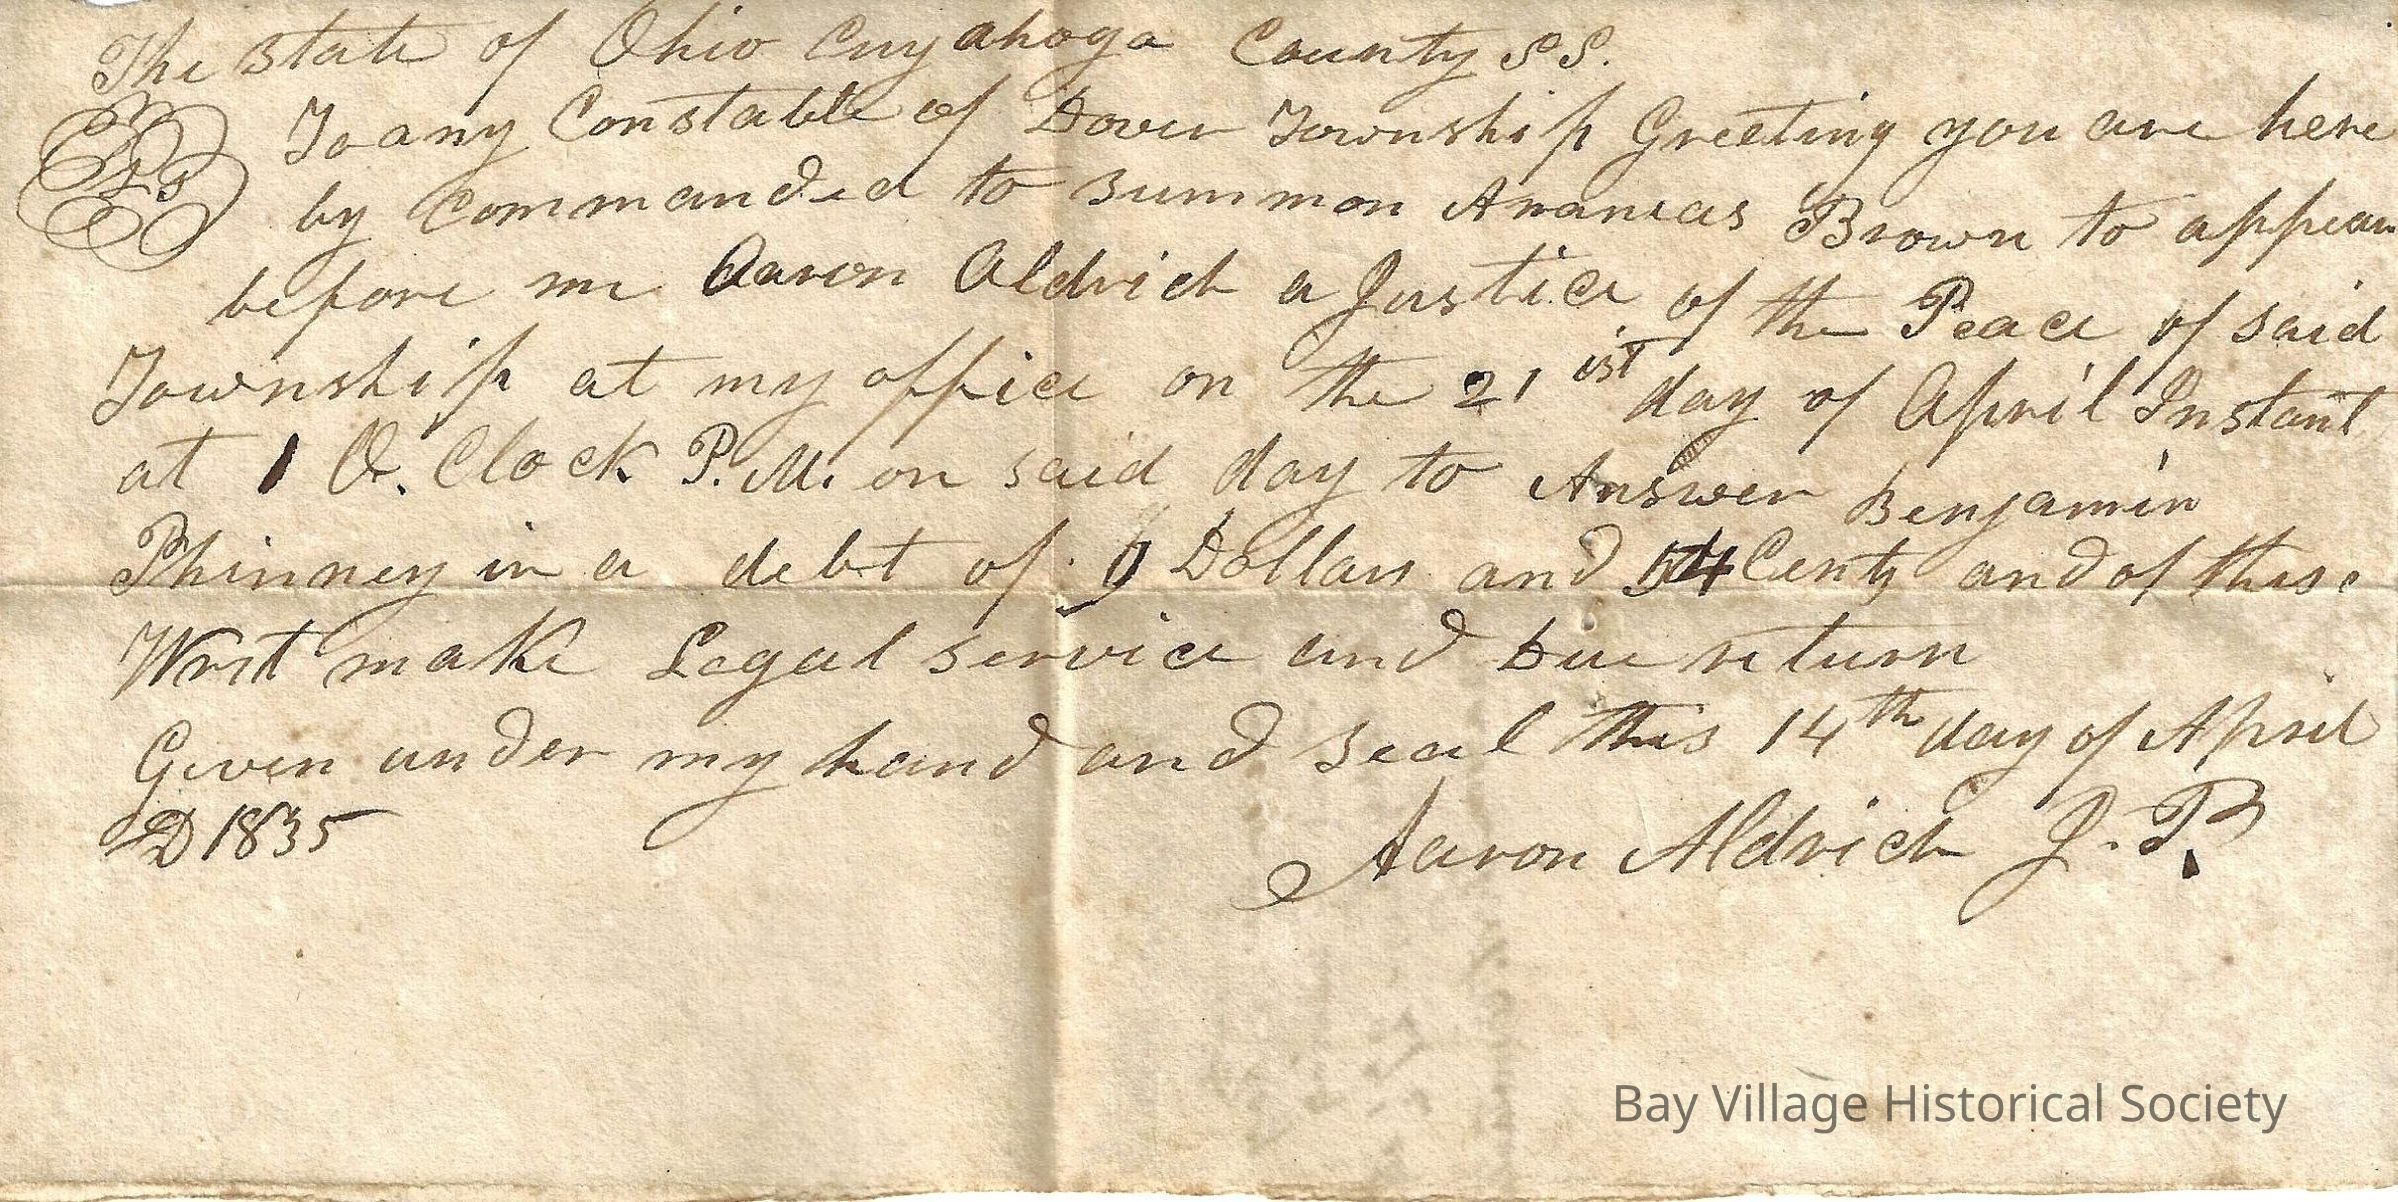 The State of Ohio Cuyahoga County SS.
To any Constable of Dover Township Greeting you are here
L.S.
by Commanded to Summon Ananias Brown to appear
before me Aaron Aldrich a Justice of the Peace of said
Township at my office on the 21 ist day of April Instant
at 1 O. Clock P.M. on said day to Answer Benjamin
Phinney in a debt of Dollars and 54 Cents and of this
Writ make Legal service and Due return
Given under my hand and seal this 14th day of April
AD 1835
Aaron Aldrich J. P.
Bay Village Historical Society